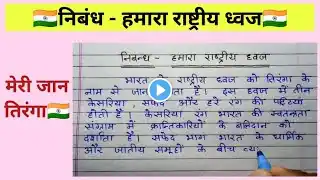 🇮🇳निबंध - हमारा राष्ट्रीय ध्वज🇮🇳
मेरी जान
तिरंगा🇮🇳
निबन्ध - हमारा राष्ट्रीय ध्वज
भारत के राष्ट्रीय ध्वज को तिरंगा के
नाम से जाना जाता है। इस ध्वज में तीन
केसरिया, सफेद और हरे रंग की पट्टियां
होती है। केसरिया रंग भारत की स्वतन्त्रता
संग्राम में क्रान्तिकारियों के बलिदान को
दर्शाता है। सफेद भाग भारत के धार्मिक
और जातीय समूहों के बीच